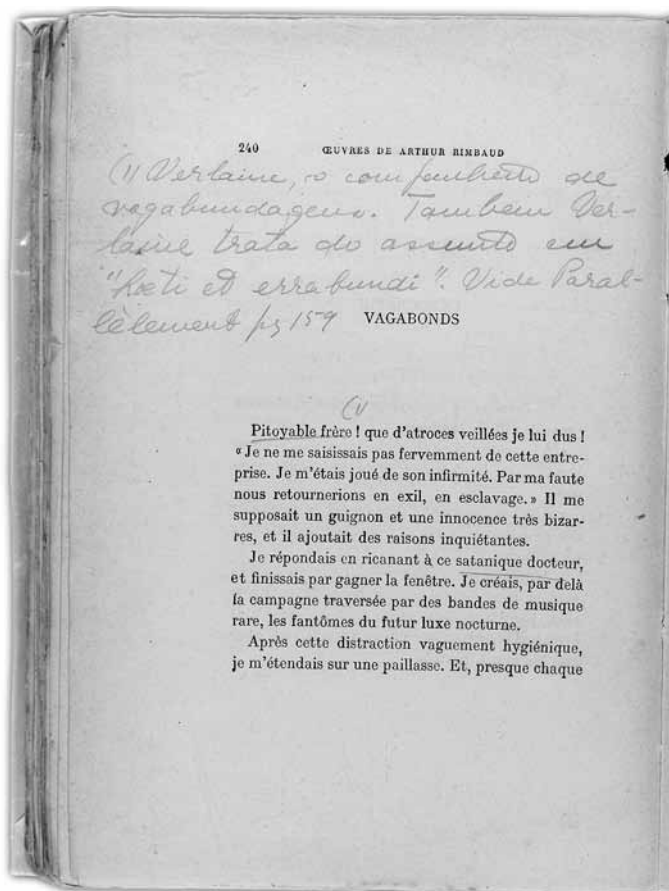 240 ŒUVRES DE ARTHUR RIMBAUD
(1) Verlaine, o companheiro de
vagabundagens. Tambem Ver-
laine trata do assunto em
"Læti et errabundi". Vide Paral-
lèlement pg 159
VAGABONDS
(1)
Pitoyable frère ! que d'atroces veillées je lui dus !
« Je ne me saisissais pas fervemment de cette entre-
prise. Je m'étais joué de son infirmité. Par ma faute
nous retournerions en exil, en esclavage. » Il me
supposait un guignon et une innocence très bizar-
res, et il ajoutait des raisons inquiétantes.
Je répondais en ricanant à ce satanique docteur,
et finissais par gagner la fenêtre. Je créais, par delà
la campagne traversée par des bandes de musique
rare, les fantômes du futur luxe nocturne.
Après cette distraction vaguement hygiénique,
je m'étendais sur une paillasse. Et, presque chaque